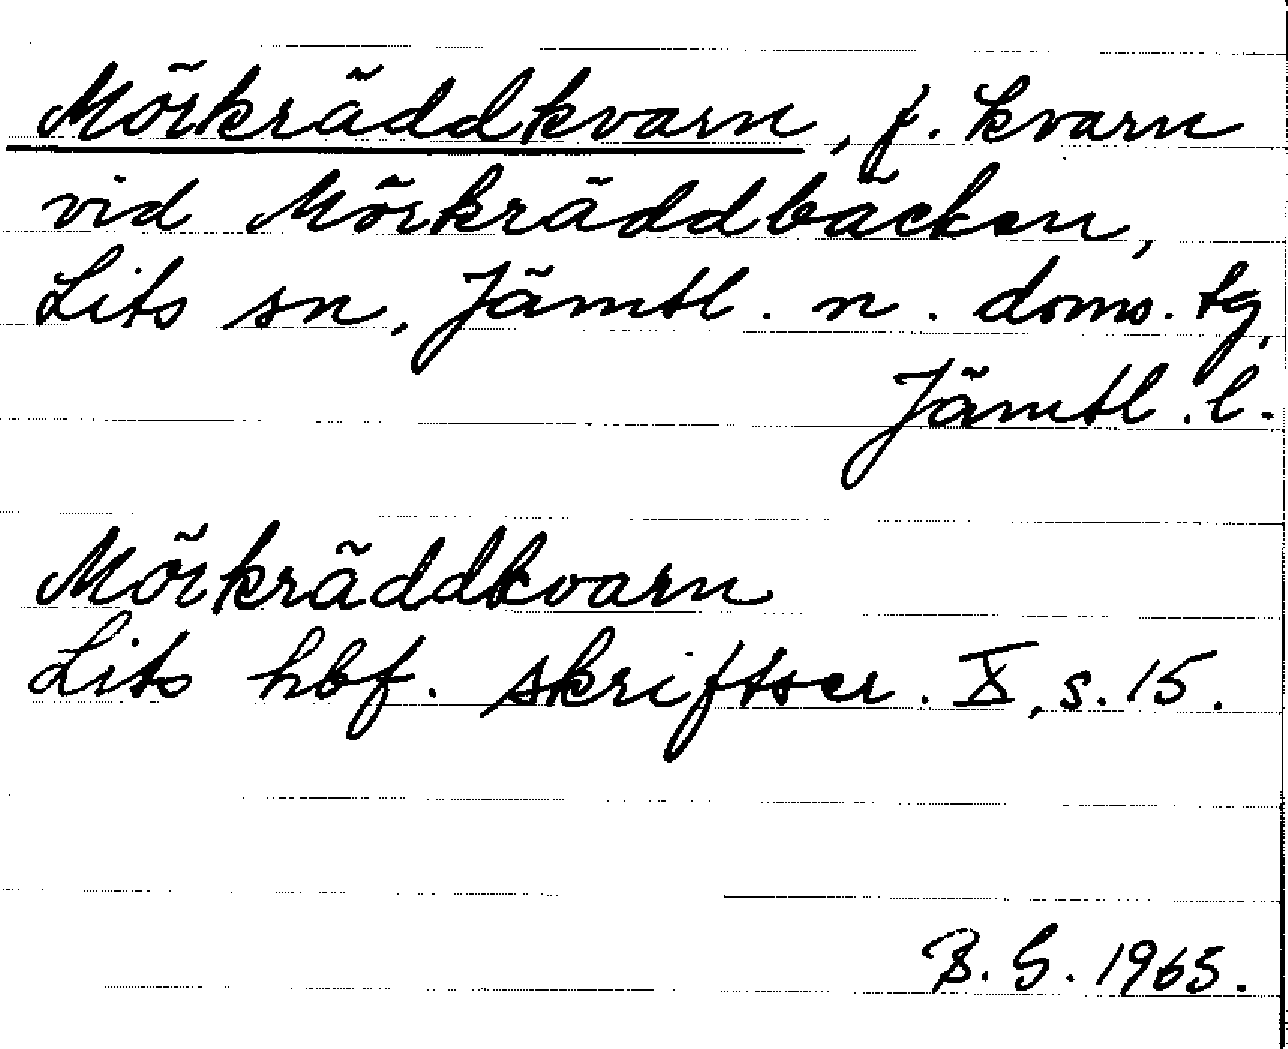 Mörkräddkvarn, f. kvarn
vid Mörkräddbäcken,
Lits sn, Jämtl. n. doms. tg,
Jämtl. l.
Mörkräddkvarn
Lits hbf. skriftser. X, s. 15.
B. G. 1965.